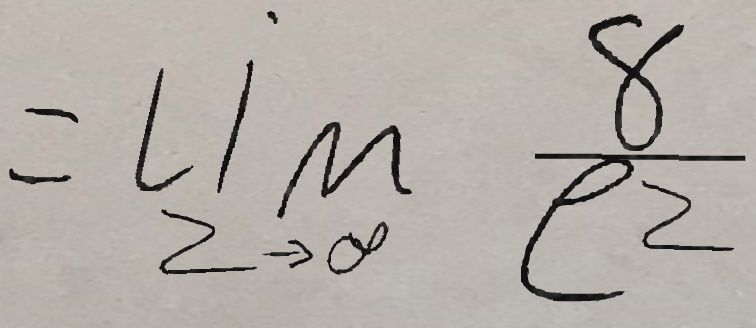 = lim_{z→∞} \frac{8}{e^z}